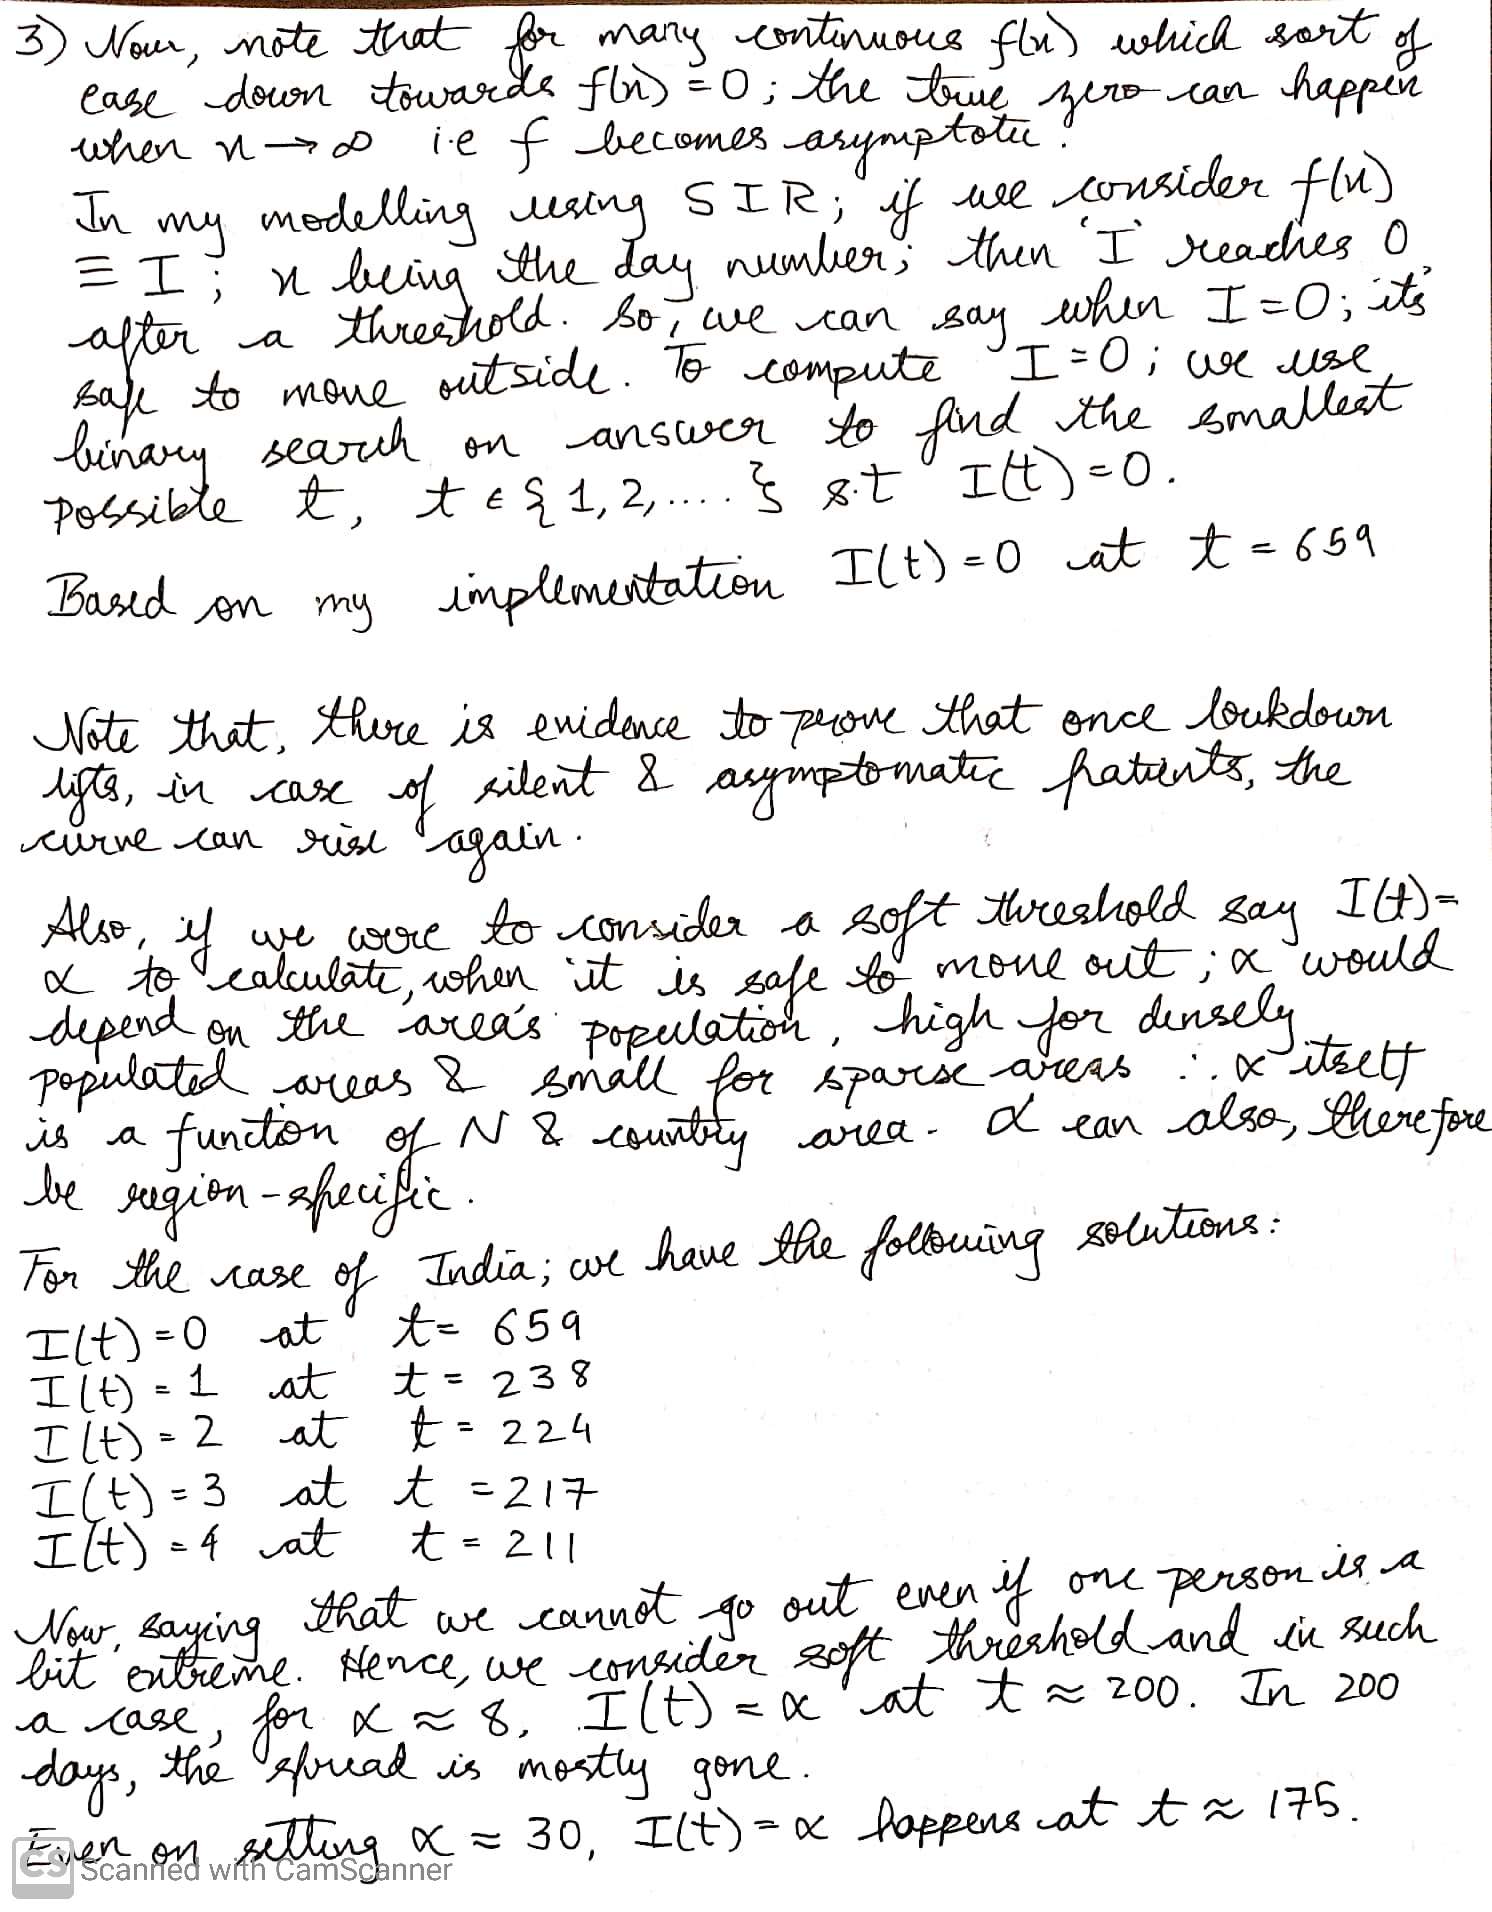 3) Now, note that for many continuous f(x) which sort of
ease down towards f(x) = 0 ; the true zero can happen
when x → ∞ i.e f becomes asymptotic.
In my modelling using SIR; if we consider f(x)
≡ I ; x being the day number; then 'I' reaches 0
after a threshold. So, we can say when I = 0; it's
safe to move outside. To compute I = 0 ; we use
binary search on answer to find the smallest
possible t, t ∈ { 1, 2, .... } s.t I(t) = 0.
Based on my implementation I(t) = 0 at t = 659
Note that, there is evidence to prove that once lockdown
lifts, in case of silent & asymptomatic patients, the
curve can rise again.
Also, if we were to consider a soft threshold say I(t) =
α to calculate, when it is safe to move out ; α would
depend on the area's population, high for densely
populated areas & small for sparse areas ∴ α itself
is a function of N & country area. α can also, therefore
be region-specific.
For the case of India; we have the following solutions:
I(t) = 0 at t = 659
I(t) = 1 at t = 238
I(t) = 2 at t = 224
I(t) = 3 at t = 217
I(t) = 4 at t = 211
Now, saying that we cannot go out even if one person is a
bit extreme. Hence, we consider soft threshold and in such
a case, for α ≈ 8, I(t) = α at t ≈ 200. In 200
days, the spread is mostly gone.
Even on setting α ≈ 30, I(t) = α happens at t ≈ 175.
CS Scanned with CamScanner